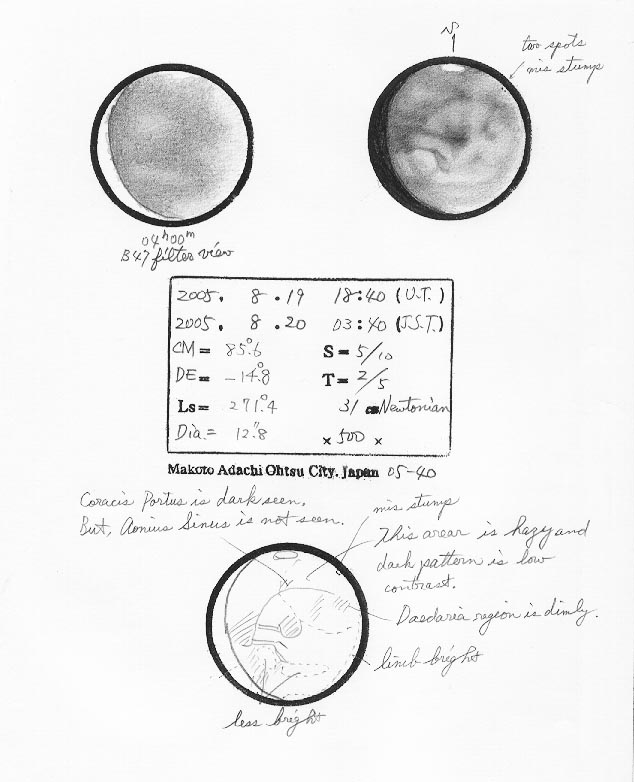 N
two spots
mis stump
04ʰ00ᵐ
B47 filter view
2005. 8 .19 18:40 (U.T.)
2005. 8 .20 03:40 (J.S.T.)
CM= 85.°6 S= 5/10
DE= -14.°8 T= 2/5
Ls= 271.°4 31 cm Newtonian
Dia.= 12."8 × 500 ×
Makoto Adachi Ohtsu City. Japan 05-40
Coracis Portus is dark seen.
But, Aonius Sinus is not seen.
mis stump
This arear is hazy and
dark pattern is low
contrast.
Daedaria region is dimly.
limb bright
less bright